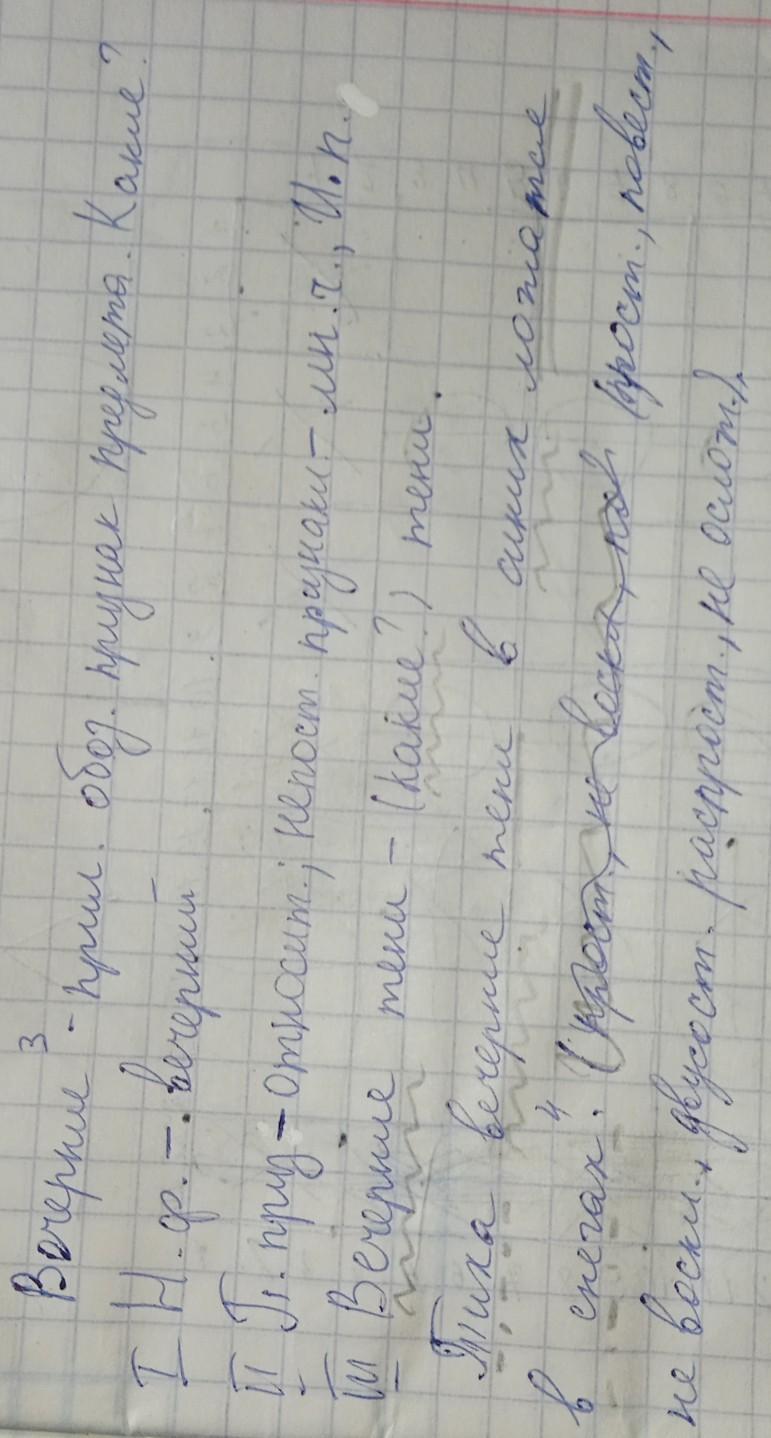 Вечерние³ - прил. обоз. признак предмета. Какие?
I Н.ф. - вечерний
II П. приз - относит.; непост. признаки - мн.ч., И.п.
III Вечерние тени - (какие?) тени.
Тиха вечерние тени в синих ложатся
в снегах.⁴ (прост., не воскл., по (прост., повест.,
не воскл., двусост. распрост., не ослож.).